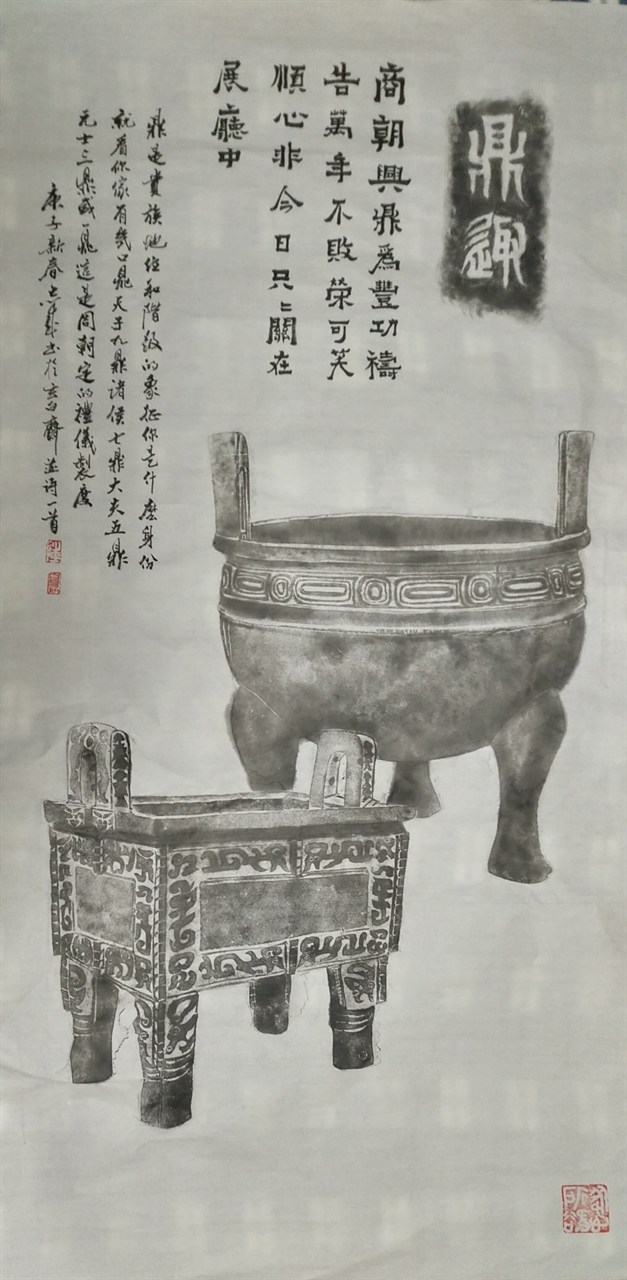 鼎
商朝興鼎爲豐功禱
告萬年不敗榮可笑
順心非今日只〻關在
展廳中
鼎是貴族地位和階級的象征你是什麽身份
就看你家有幾口鼎天子九鼎諸侯七鼎大夫五鼎
元士三鼎或一鼎這是周朝定的禮儀製度
庚子新春書於玄白齋並詩一首